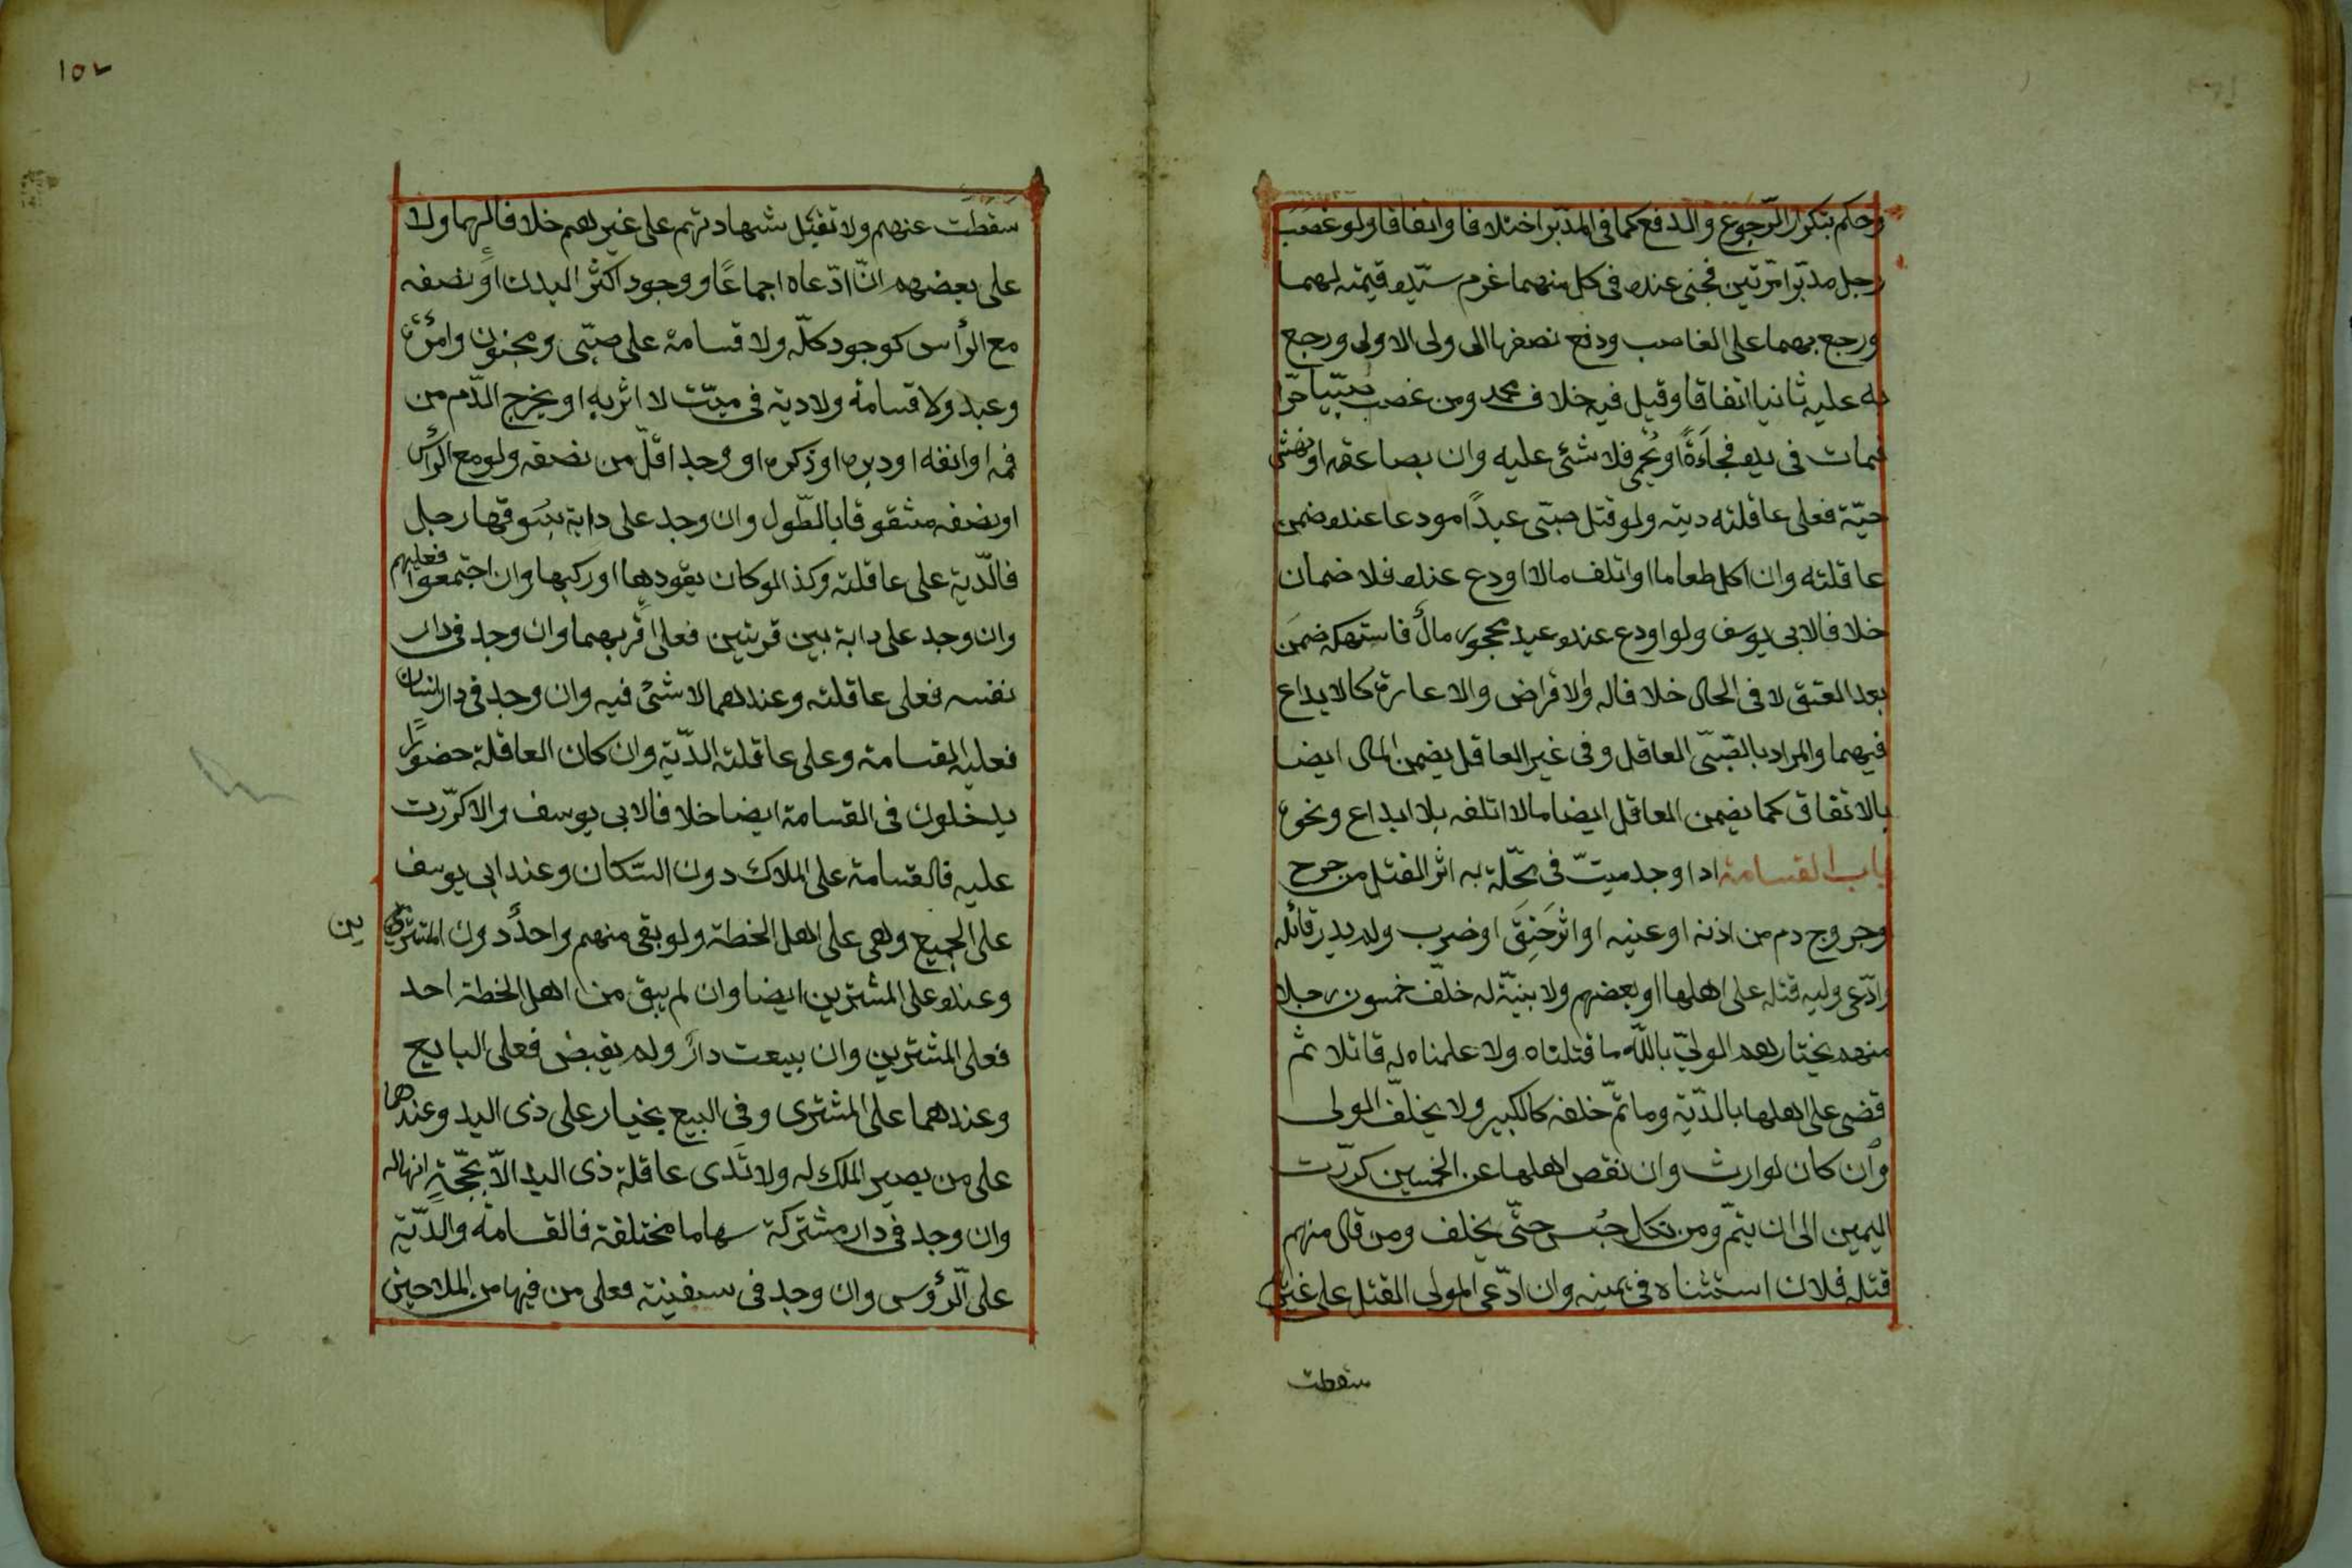 وحكم بتكرار الرّجوع والدفع كما فى المدبّر اختلافا واتفاقا ولو غصب
رجل مدبّرا مرّتين فجنى عنده فى كل منهما غرم سيّده قيمته لهما
ورجع بهما على الغاصب ودفع نصفها الى ولى الاولى ورجع
به عليه ثانيا اتفاقا وقيل فيه خلاف محمد ومن غصب صبّيا حرّا
فمات فى يده فجاءةً او بحمى فلا شئ عليه وان بصاعقة او نهش
حيّة فعلى عاقلته ديته ولو قتل صبّى عبدًا مودعا عنده ضمن
عاقلته وان اكل طعاما او اتلف مالا اودع عنده فلا ضمان
خلافا لابى يوسف ولو اودع عند عبد محجور مالٌ فاستهكه ضمن
بعد العتق لا فى الحال خلافا له والاقراض والاعارة كالايداع
فيهما والمراد بالصّبّى العاقل وفى غير العاقل يضمن المال ايضا
بالاتفاق كما يضمن العاقل ايضا مالا اتلفه بلا ايداع ونحوه
باب القسامة اذا وجد ميتّ فى محّلة به اثر القتل من جرح
وجروج دم من اذنه او عنيه او اثر خَنِقَ او ضرب ولم يدر قاتله
وادّعى وليه قتله على اهلها او بعضهم ولا بنيّة له خلّف خمسون رجلا
منهم يختارهم الوليّ باللّه ما قتلناه ولا علمناه له قاتلا ثم
قضى على اهلها بالدّية وما تمّ خلفه كالكبير ولا يخلّف الولى
وان كان لوارث وان نقص اهلها عن الخمسين كررّت
اليمين الى ان يتمّ ومن نكل حُبس حتّى يخلف ومن قال منهم
قتله فلان استثناه فى يمينه وان ادّعى المولى القتل على غيرهم
سقطت
١٥٧
سقطت عنهم ولا تقبل شهادتهم على غيرهم خلافا لهما ولا
على بعضهم انّ ادّعاه اجماعًا ووجود اكثر البدن او نصفه
مع الرأس كوجود كلّه ولا قسامة على صبّى ومجنون وامرأة
وعبد ولا قسامة ولا دية فى ميّت لا اثر به او يخرج الدّم من
فمه او انفه او دبره او ذكره او وجد اقلّ من نصفه ولو مع الرأس
او نصفه مشقوقا بالطّول وان وجد على دابة يسوقها رجل
فالدّية على عاقلته وكذا لو كان يقودها او ركبها وان اجتمعوا فعليهم
وان وجد على دابة بين قريتين فعلى اقربهما وان وجد فى دار
نفسه فعلى عاقلته وعندهما لا شئ فيه وان وجد فى دار انسان
فعليه القسامة وعلى عاقلته الدّية وان كان العاقلة حضورًا
يدخلون فى القسامة ايضا خلافا لابى يوسف والا كرّرت
عليه فالقسامة على الملاك دون السّكان وعند ابى يوسف
على الجميع وهى على اهل الخطة ولو بقى منهم واحدٌ دون المشترين
وعنده على المشترين ايضا وان لم يبق من اهل الخطة احد
فعلى المشترين وان بيعت دارٌ ولم يقبض فعلى البايع
وعندهما على المشترى وفى البيع بخيار على ذى اليد وعندهما
على من يصير الملك له ولا تدى عاقلة ذى اليد الاّ بحجّةٍ انها له
وان وجد فى دار مشتركة سهاما مختلفة فالقسامة والدّية
على الرّؤس وان وجد فى سفينة فعلى من فيها من الملاحين